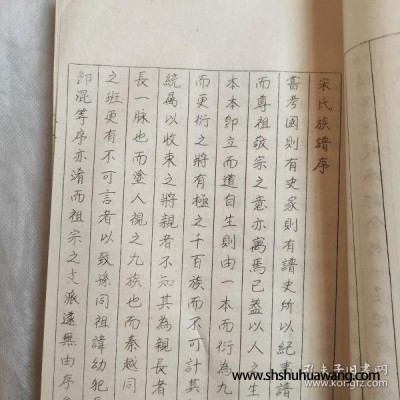 宋氏族譜序
嘗考國則有史家則有譜史所以紀事譜
而尊祖敬宗之意亦寓焉已盖以人之生
本本卽立而道自生則由一本而衍為九
而更衍之將有極之千百族而不可計其
統属以收束之將親者不知其為親長者
長一脉也而塗人視之九族也而秦越同
之班更有不可言者以致孫同祖諱幼犯長
卽混等序亦淆而祖宗之支派遠無由序
www.shshuhuawang.com
孔夫子旧书网